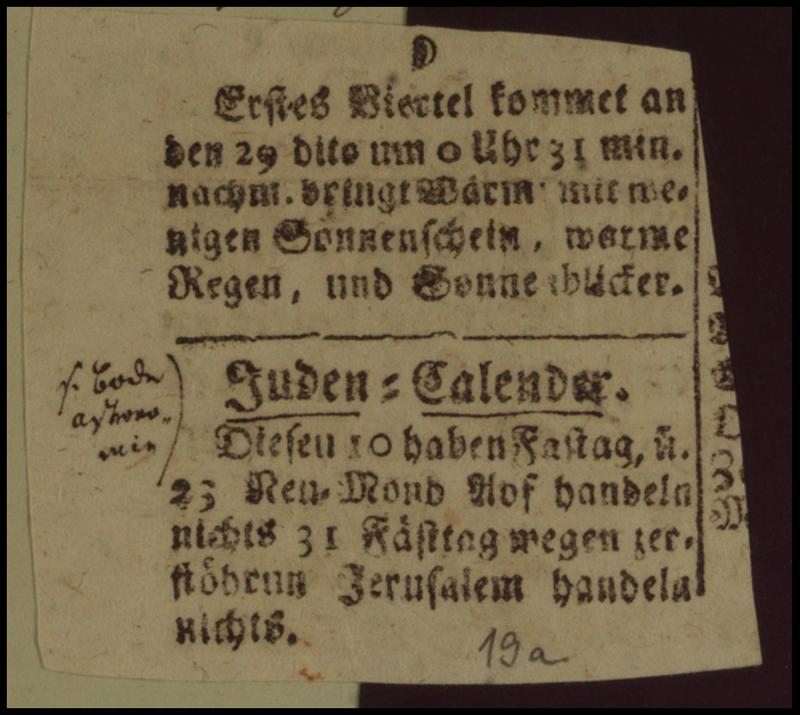 D
Erstes Viertel kommet an
den 29 dito um 0 Uhr 31 min.
nachm. bringt Wärm mit we-
nigen Sonnenschein, warme
Regen, und Sonne blicker.
Juden-Calender.
s. Bode
astrono-
mie
Diesen 10 haben Fastag, ü.
23 Neu-Mond Aof handeln
nichts 31 Fästtag wegen zer-
stöhrun Jerusalem handeln
nichts.
19a